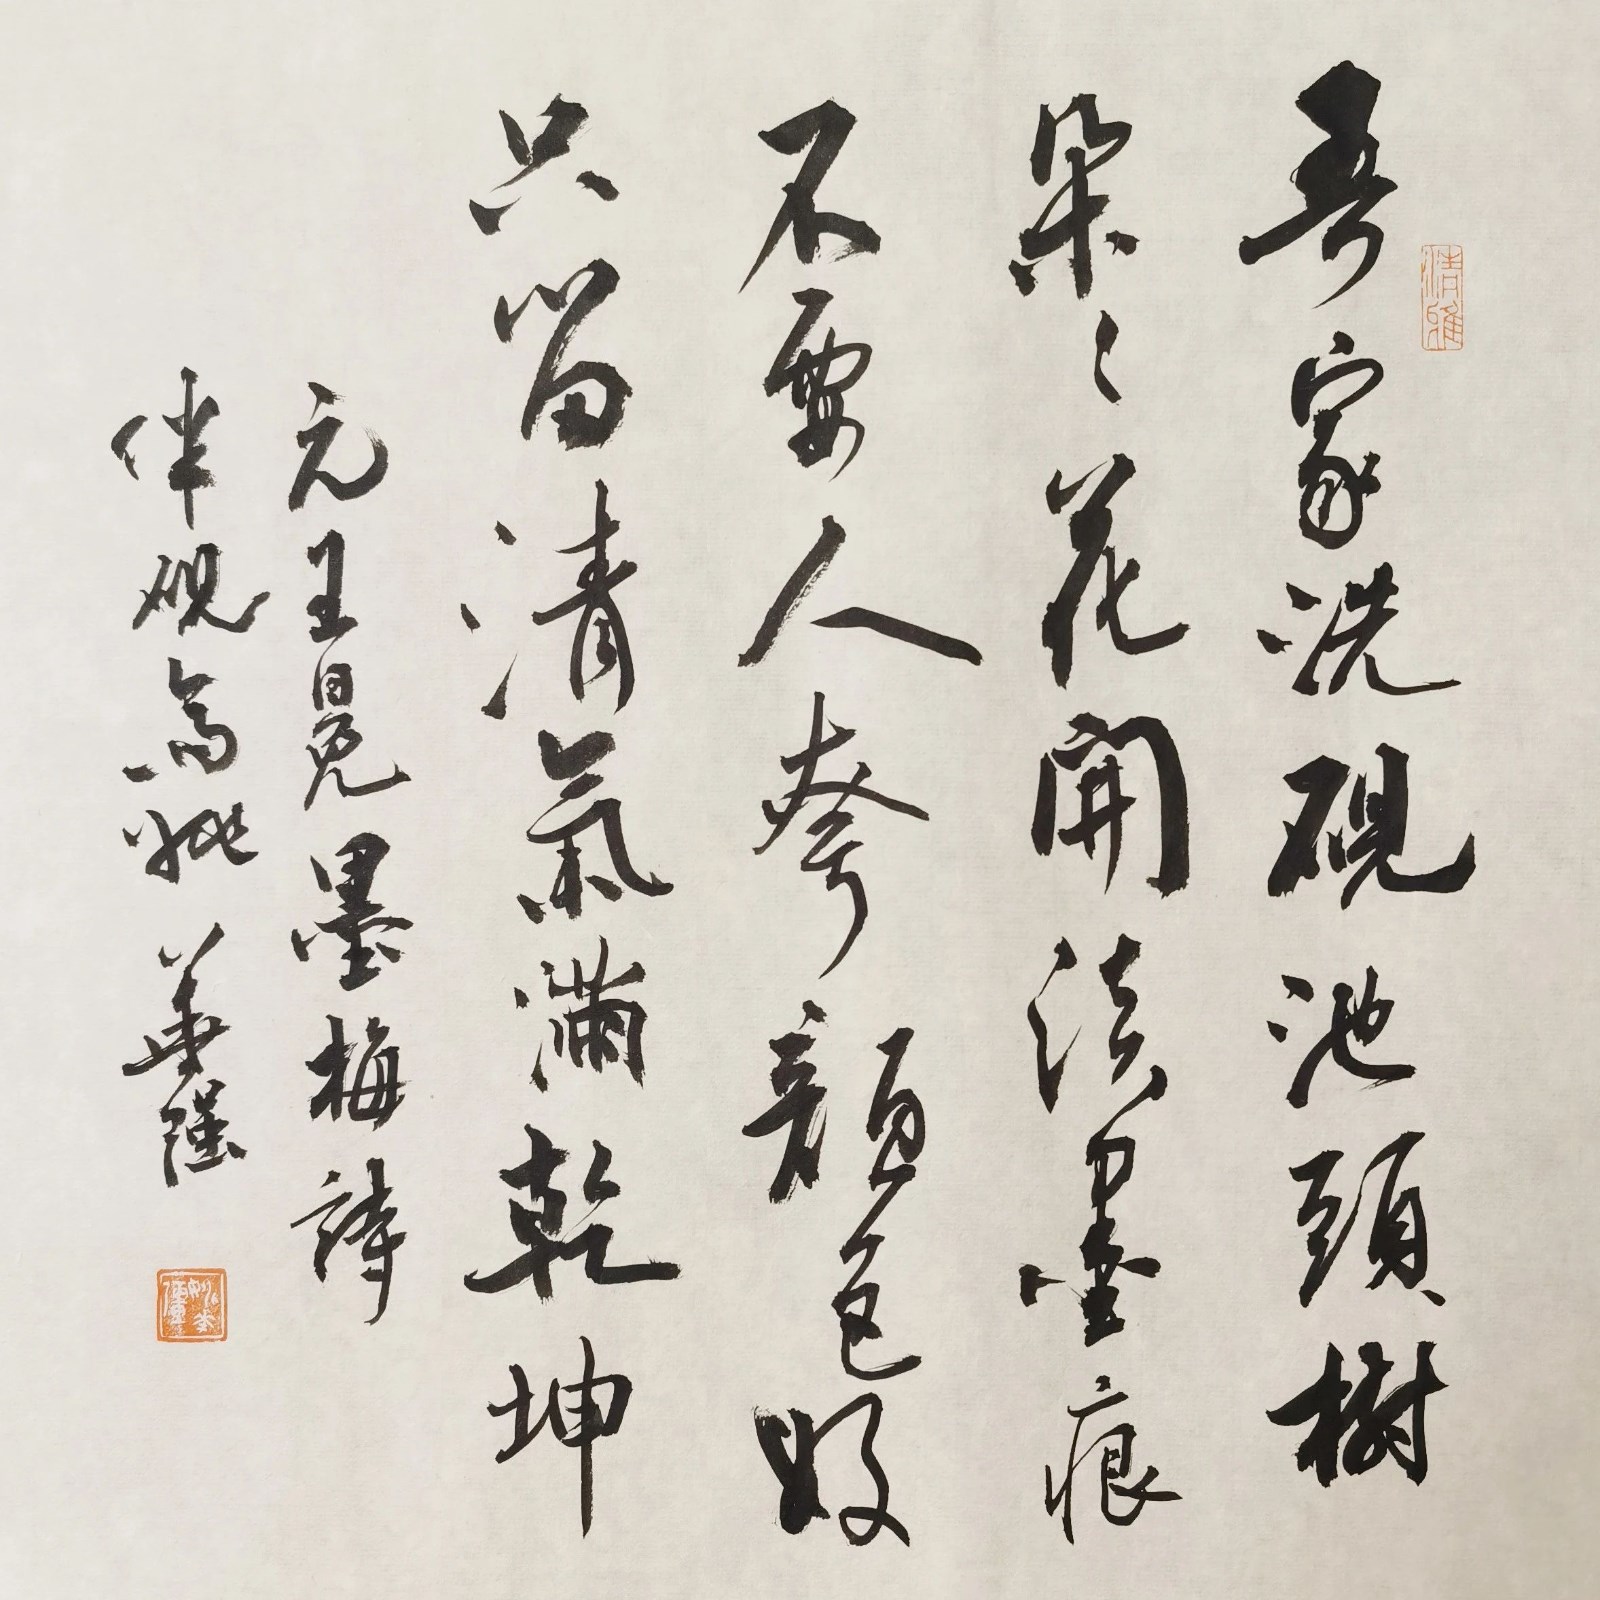 吾家洗硯池頭樹
朵々花開淡墨痕
不要人夸顏色好
只留清氣滿乾坤
元王冕墨梅詩
伴硯斋姚華